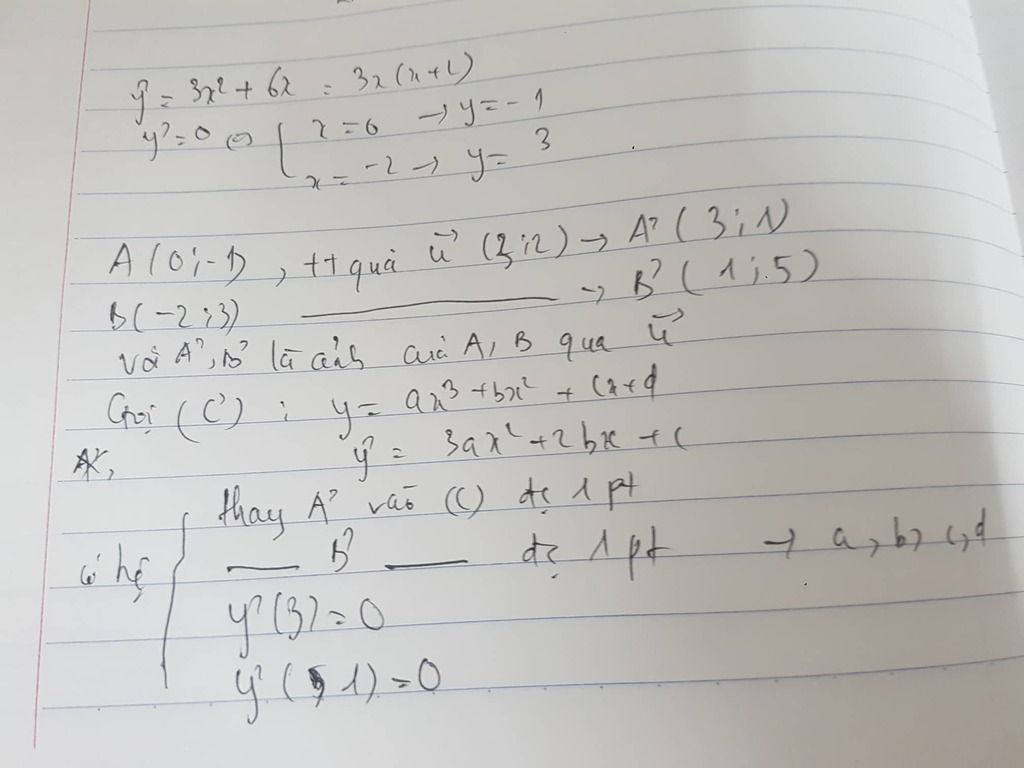 y' = 3x² + 6x = 3x(x+2)
y' = 0 ⇔ [ x = 0 → y = -1
x = -2 → y = 3
A(0;-1), tt qua u⃗ (3;2) → A' (3;1)
B(-2;3) ——— → B' (1;5)
với A', B' là ảnh của A, B qua u⃗
Gọi (C') : y = ax³ + bx² + cx + d
y' = 3ax² + 2bx + c
thay A' vào (C) đc 1 pt
có hệ { — B' — đc 1 pt → a, b, c, d
y'(3) = 0
y'(1) = 0